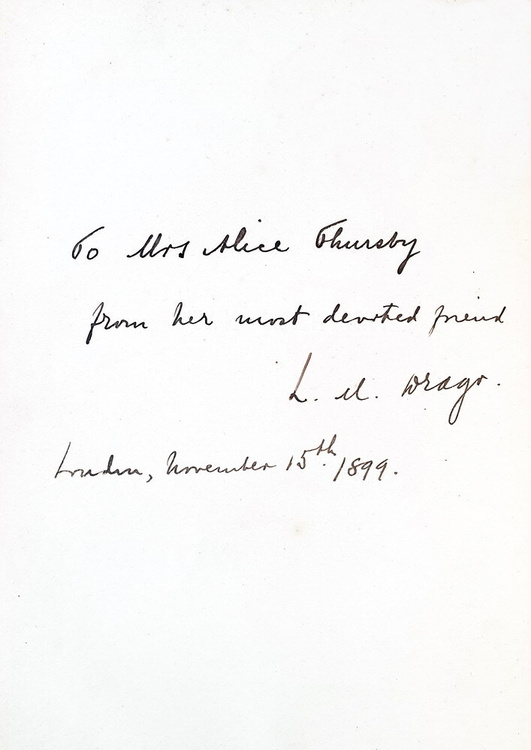 To Mrs Alice Thursby
from her most devoted friend
L. M. Drago.
London, November 15th. 1899.